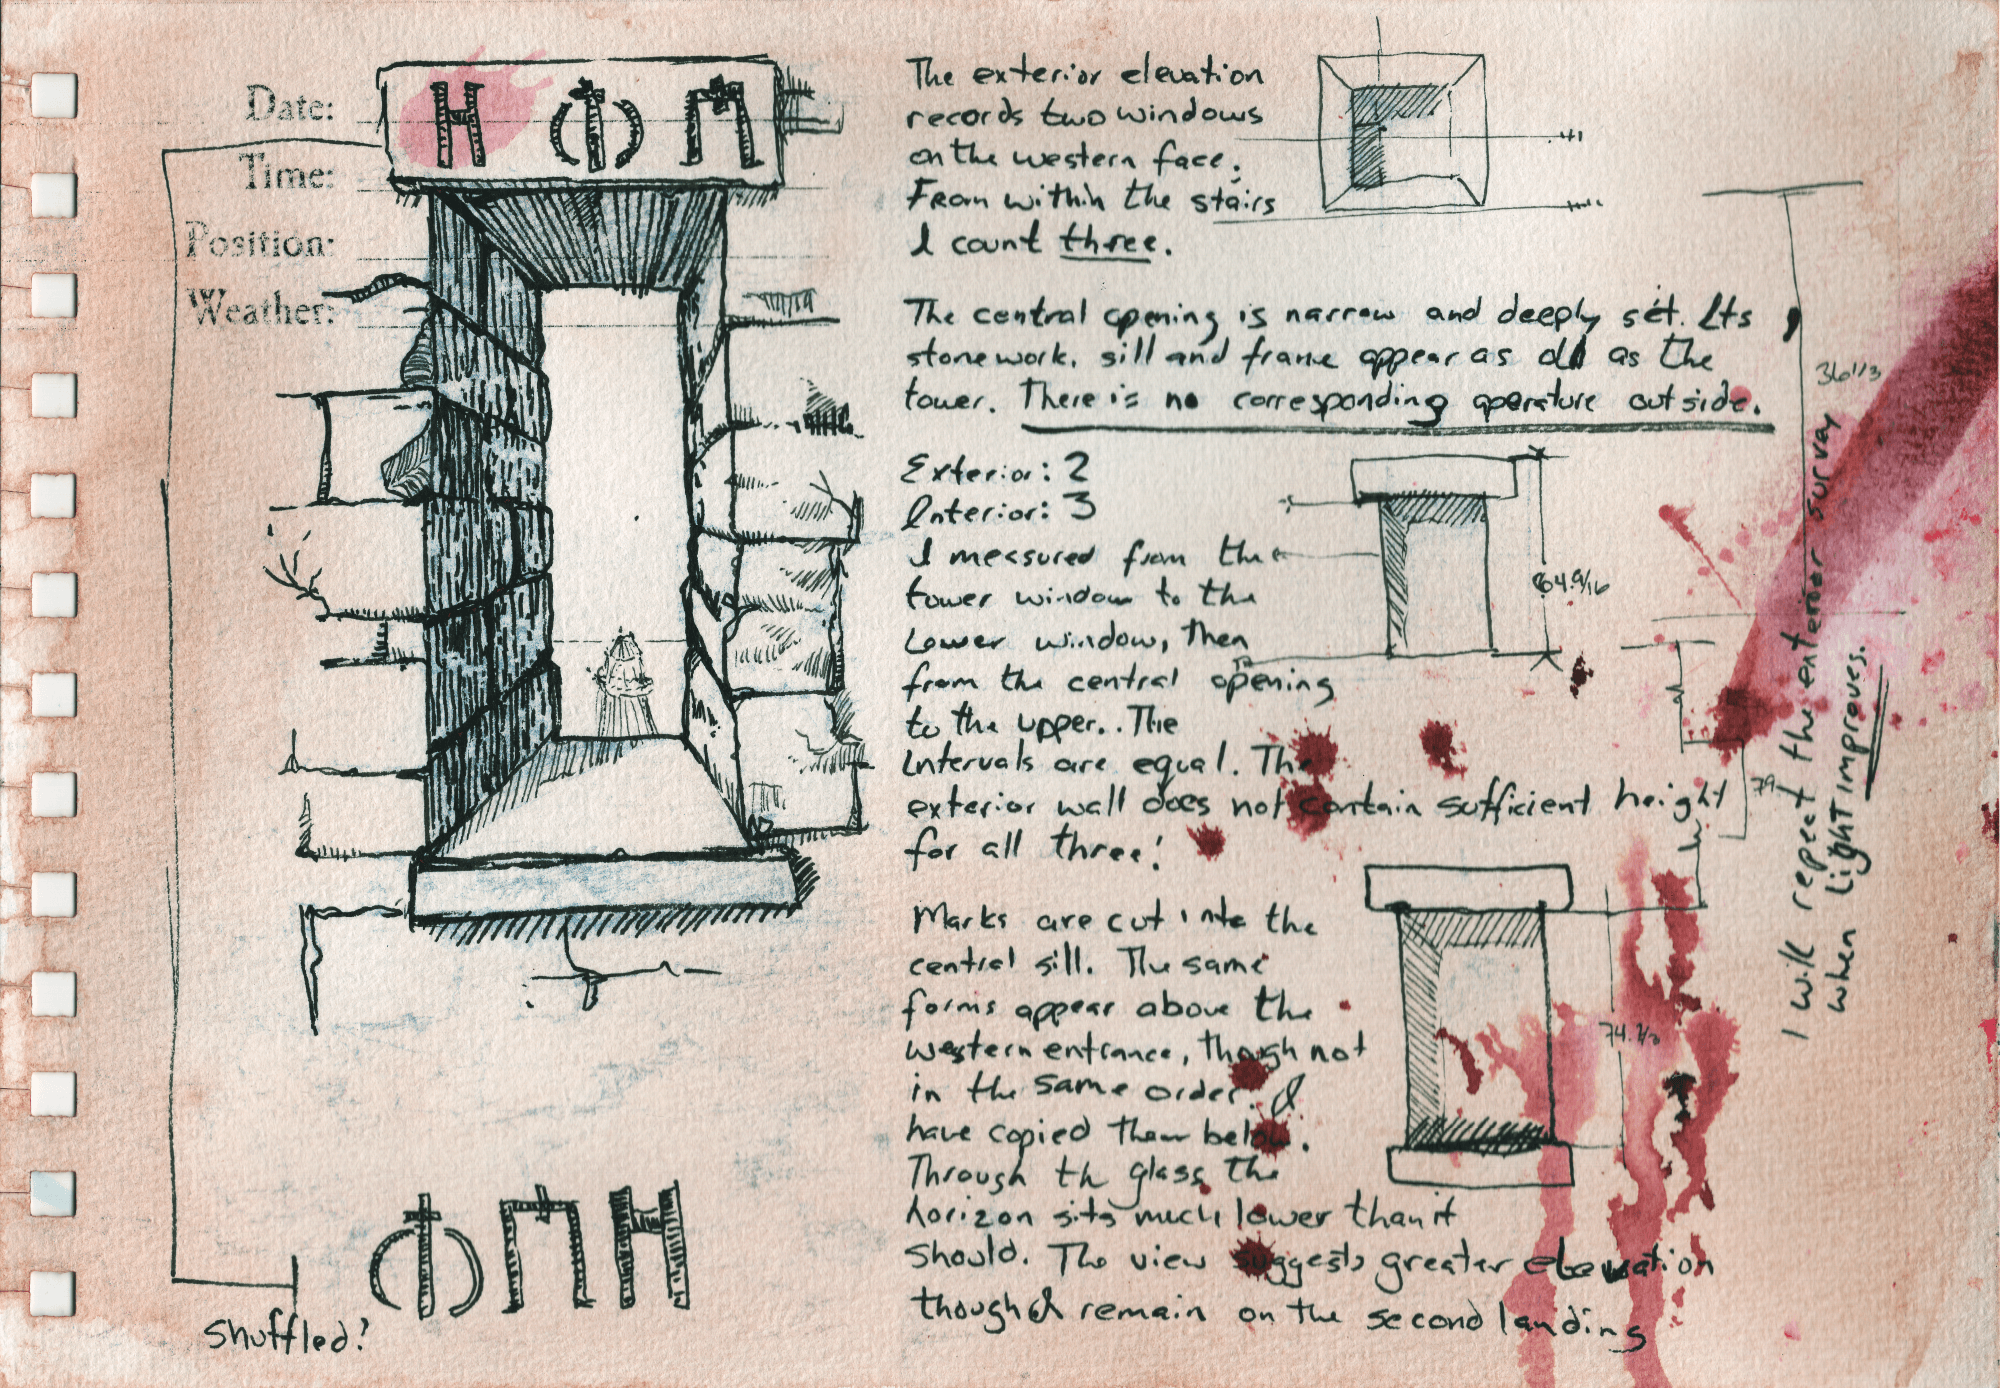 Date:
Time:
Position:
Weather:
H Φ П
The exterior elevation
records two windows
on the western face;
From within the stairs
I count three.
The central opening is narrow and deeply set. Its
stonework, sill and frame appear as old as the
tower. There is no corresponding aperature outside.
Exterior: 2
Interior: 3
I measured from the
tower window to the
Lower window, then
from the central opening
to the upper.. The
Intervals are equal. The
exterior wall does not contain sufficient height
for all three!
Marks are cut into the
central sill. The same
forms appear above the
western entrance, though not
in the same order. I
have copied them below.
Through th glass the
horizon sits much lower than it
should. The view suggests greater elevation
though I remain on the second landing
Φ П H
Shuffled?
64.9/16
79
I will repeat the enterior survay
when light improves.